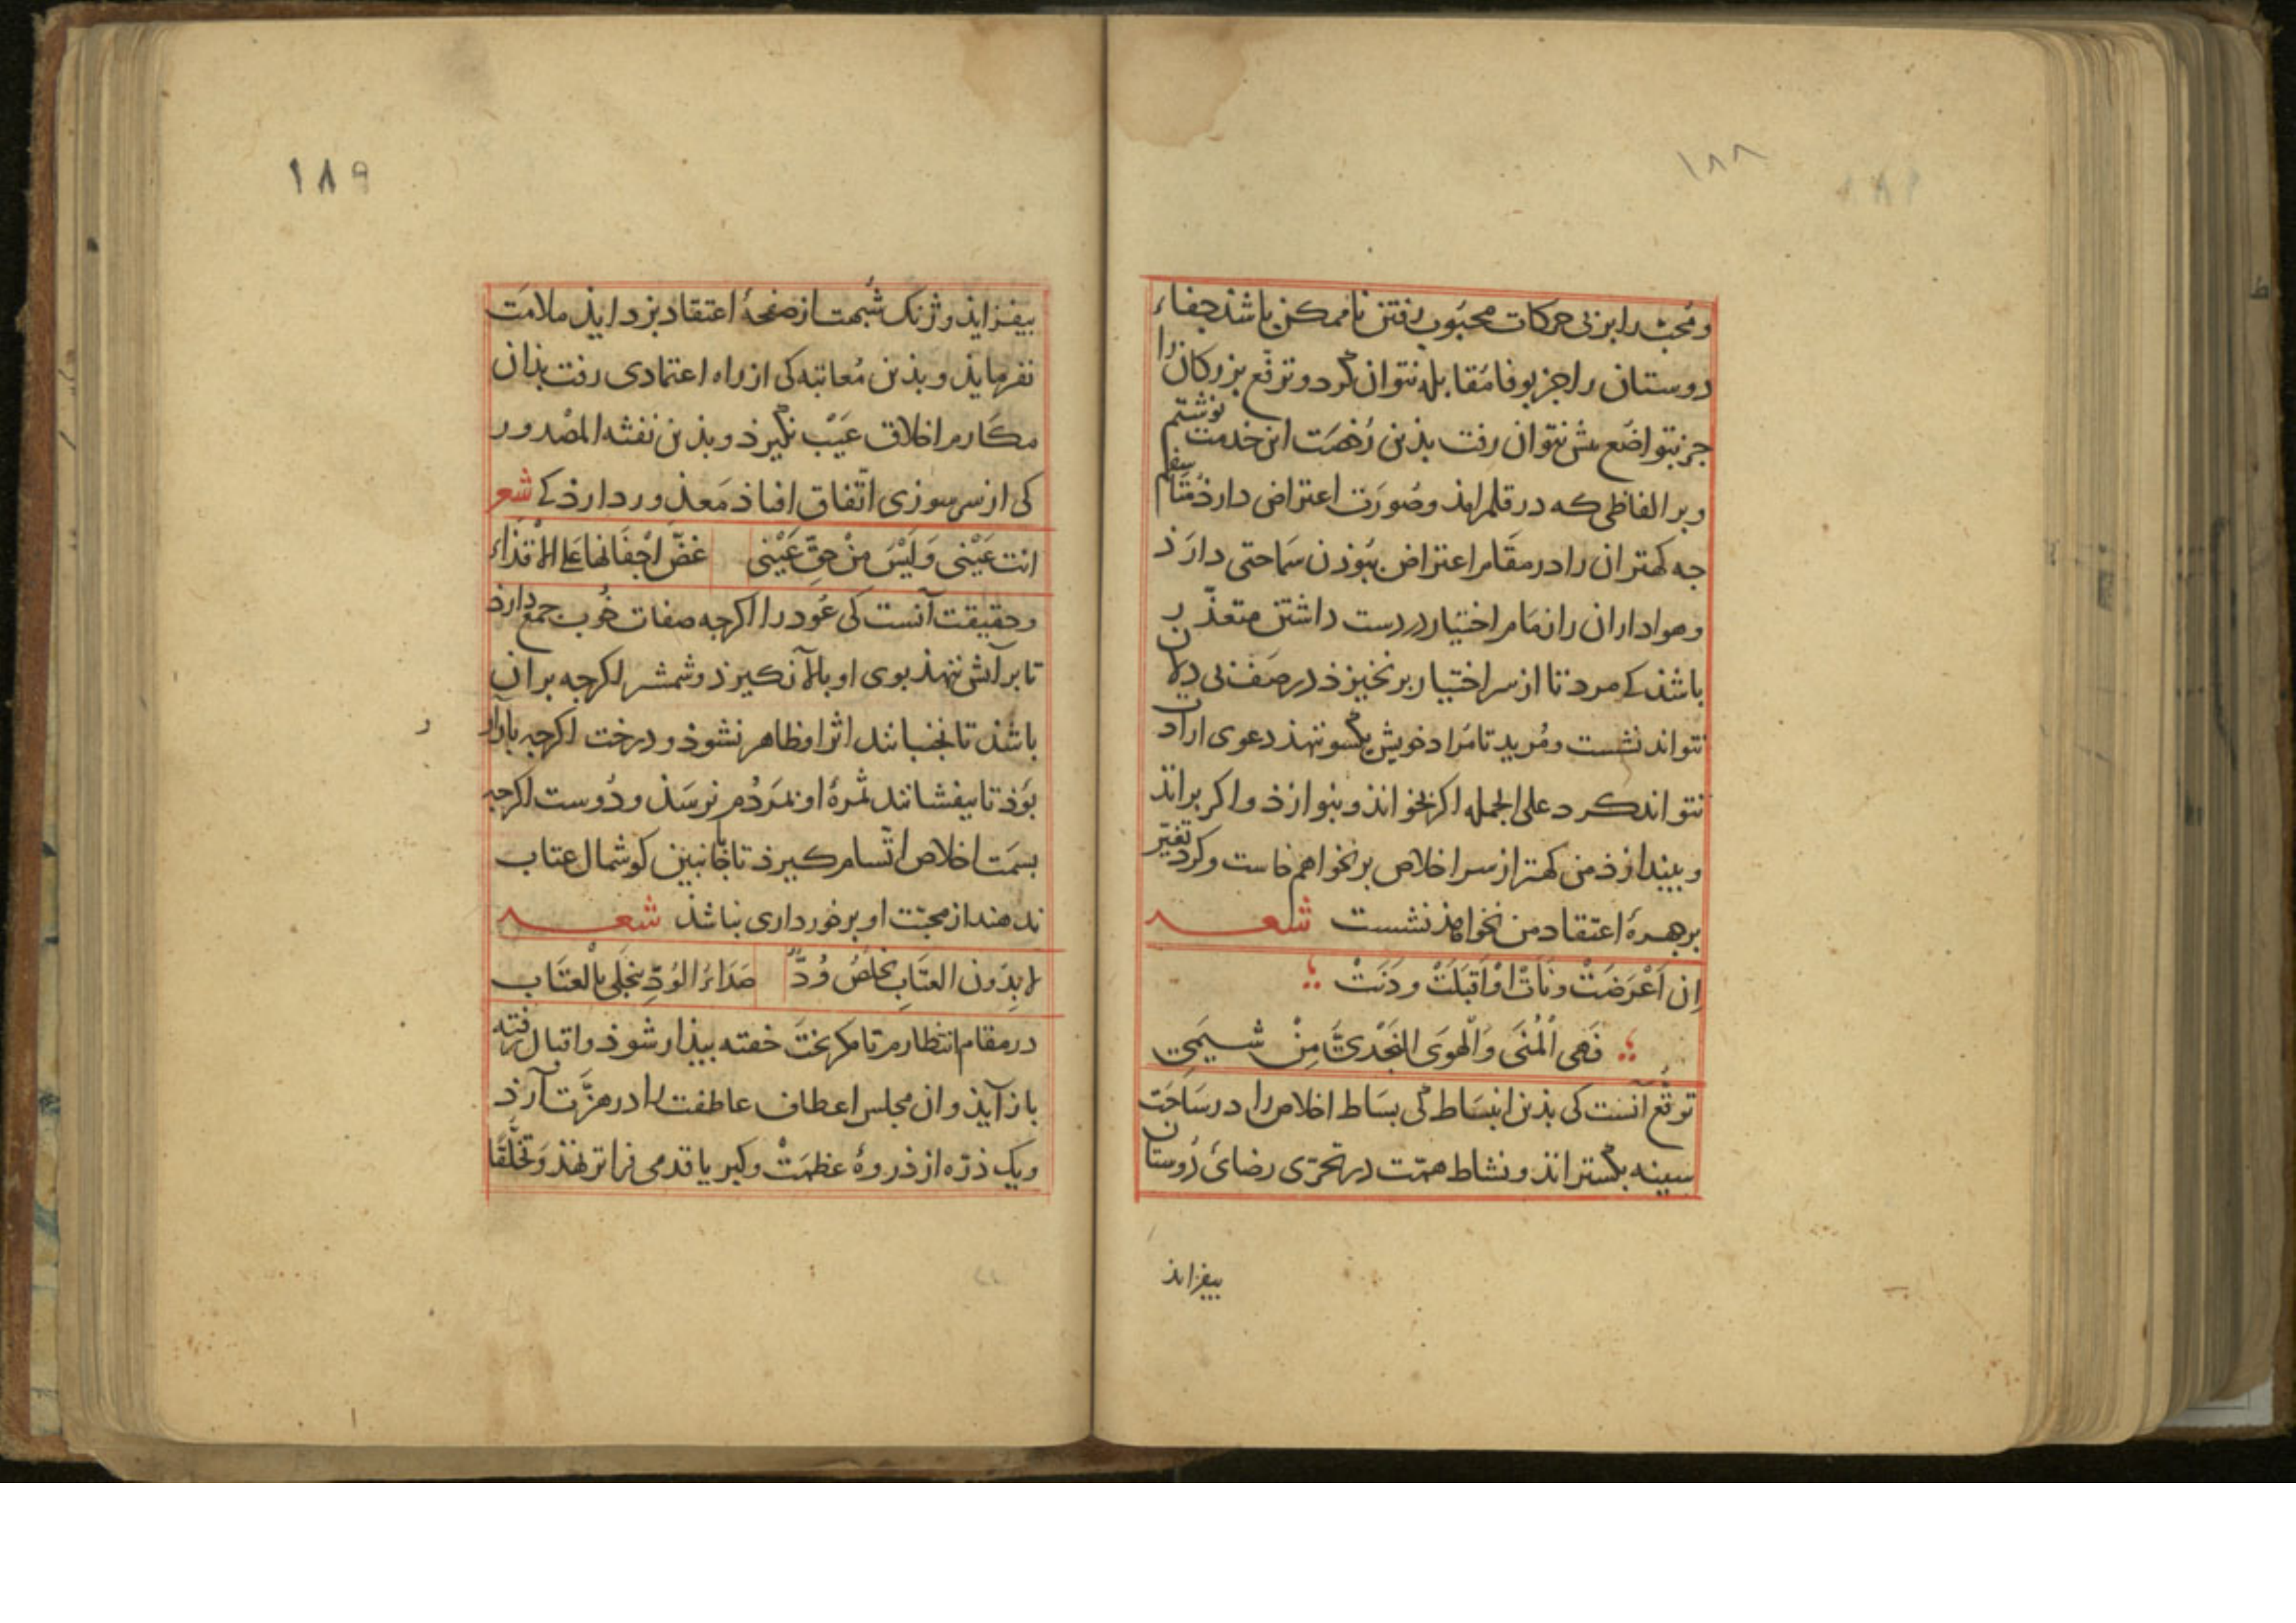 ۱۸۸
و مُحبّ را بر پی حرکات محبُوب رفتن ناممکن باشذ جفاء
دوستان را جز بوفا مُقابله نتوان کرد و ترفّع بزرکان را
جز بتواضع بیش نتوان رفت بذین رُخصَت این خدمت نوشتم
و بر الفاظی که در قلم امذ و صُورَت اعتراض دارذ
چه کهتران را در مقام اعتراض بوذن سماحتی دارذ
و هواداران را زمام اختیار در دست داشتن متعذّر
باشذ کی مرد تا از سر اختیار برنخیزذ در صف بی دلان
نتواند نشست و مُرید تا مُراد خویش بکسو ننهذ دعوی ارادت
نتواند کرد علی الجمله اکر بخوانذ و بنوازذ و اکر برانذ
و بیندازذ من کهتر از سر اخلاص برنخواهم خاست و کرد تغیّر
بر چهرهٔ اعتقاد من نخواهذ نشست شعر
اِن اَعْرَضَتْ وَنَأَتْ اَوْ اَقبَلَتْ وَدَنَتْ
فَهِیَ الْمُنَی وَالْهوَی النَجْدیُّ مِنْ شِیَمِی
توقّع آنست کی بذین انبسَاط کی بسَاط اخلاص را در سَاحَت
سینه بکسترانذ و نشاط همّت در تحرّی رضائ دُوستان
بیفزایذ
۱۸۹
بیفزایذ و ژنک شُبهت از صفحهٔ اعتقاد بزدایذ ملامَت
نفرمایذ و بذین مُعاتبه کی از راه اعتمادی رفت بذان
مکارم اخلاق عَیْب نکیرذ و بذین نفثه المصْدور
کی از سر سوزی اتّفاق افتاذ مَعذور دارذ کی شعر
انت عَیْنی وَلَیْسَ مِنْ حقِّ عَیْنی غضّ اَجْفَانها عَلی الاَقْذَاءِ
و حقیقت آنست کی عُود را اکرچه صفات خُوب جمع دارذ
تا بر آتش ننهند بوی او بالا نکیرذ و شمشیر اکرچه بران
باشذ تا نجنبانند اثر او ظاهر نشوذ و درخت اکرچه باردار
بوَذ تا بیفشانند ثمرهٔ او بمَردُم نرسَذ و دُوست اکرچه
بسمَت اخلاص اتّسام کیرذ تا بجانبین کوشمال عتاب
ندهند از محبّت او برخورداری نباشذ شعر
لا بِدُونِ العتَابِ یخلصُ وُدٌّ صَدَاءُ الوُدِّ ینجَلِی بِالْعتَاب
در مقام انتظارم تا مکر بَختَ خفته بیذار شوذ و اقبال رفته
باز آیذ و ان مجلس اعطاف عاطفت را در هزَّت آرذ
و یک ذرّه از ذروهٔ عظمَتْ و کبریا قدمی فراتر نهذ وَ تخلُّقًا